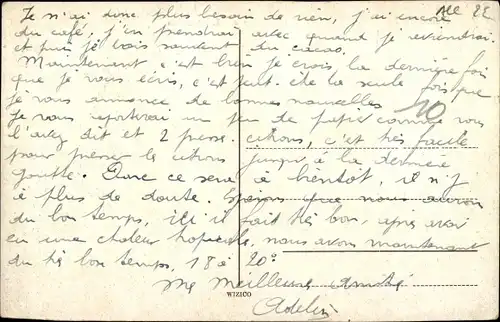 Je n'ai donc plus besoin de rien, j'ai encore
du café, j'en prendrai avec quand je reviendrai
et puis je vais sûrement du cacao.
Maintenant c'est bien je crois la dernière fois
que je vous écris, c'est fait de la seule fois que
je vous annonce de bonnes nouvelles
10
je vous apporterai un peu de papier comme vous
l'avez dit et 2 presse citrons, c'est très facile
pour presser le citron jusqu'à la dernière
goutte. Donc ce sera à bientôt, il n'y
a plus de doute. Espérons que nous aurons
du bon temps, ici il fait très bon, après avoir
eu une chaleur tropicale, nous avons maintenant
du très bon temps, 18 à 20°
Mes Meilleures amitiés
WIZICO